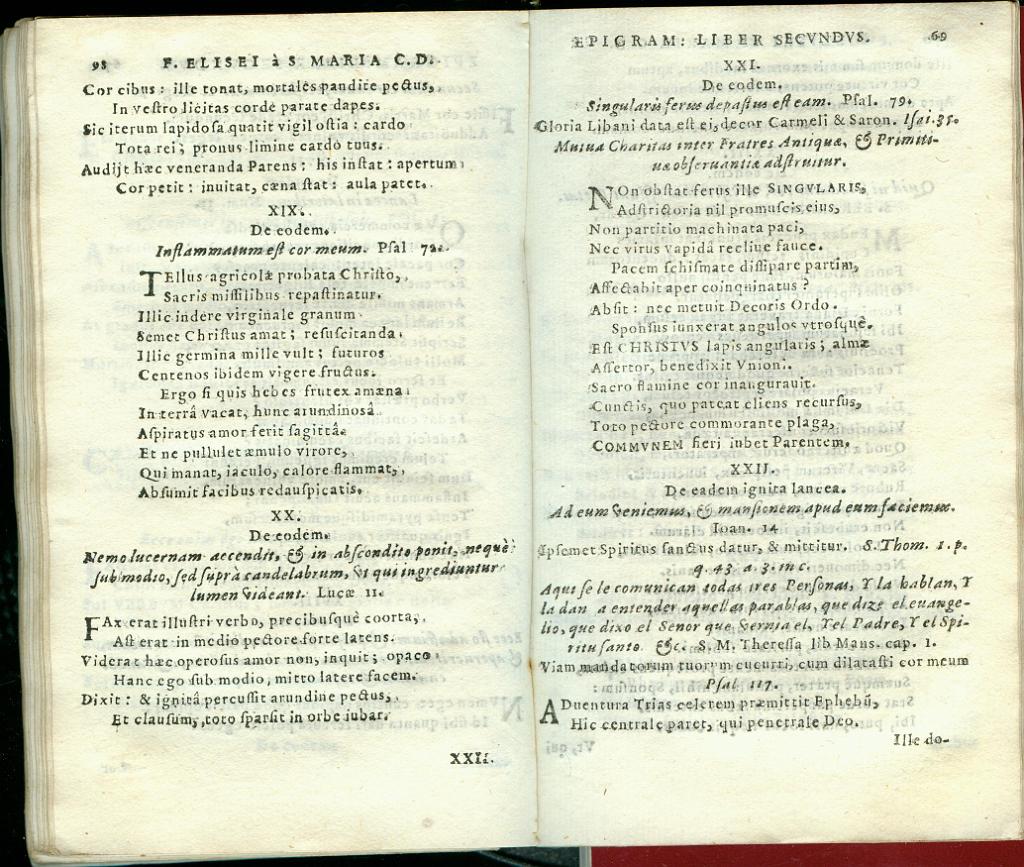 98 F. ELISEI à S MARIA C. D.
Cor cibus : ille tonat, mortales pandite pectus,
In vestro licitas corde parate dapes.
Sic iterum lapidosa quatit vigil ostia : cardo
Tota rei ; pronus limine cardo tuus.
Audijt hæc veneranda Parens : his instat : apertum
Cor petit : inuitat, cæna stat : aula patet.
XIX.
De eodem.
Inflammatum est cor meum. Psal 72.
TEllus agricolæ probata Christo,
Sacris missilibus repastinatur.
Illic indere virginale granum
Semet Christus amat ; resuscitanda
Illic germina mille vult ; futuros
Centenos ibidem vigere fructus.
Ergo si quis hebes frutex amæna
In terrâ vacat, hunc arundinosâ
Aspiratus amor ferit sagittâ.
Et ne pullulet æmulo virore,
Qui manat, iaculo, calore flammat,
Absumit facibus redauspicatis.
XX.
De eodem.
Nemo lucernam accendit, & in abscondito ponit, nequè
sub modio, sed suprà candelabrum, vt qui ingrediuntur
lumen videant. Lucæ 11.
FAx erat illustri verbo, precibusquè coorta,
Ast erat in medio pectore forte latens.
Viderat hæc operosus amor non, inquit ; opaco
Hanc ego sub modio, mitto latere facem.
Dixit : & ignitâ percussit arundine pectus,
Et clausum, toto sparsit in orbe iubar.
XXI.
EPIGRAM: LIBER SECVNDVS. 69
XXI.
De eodem.
Singularis ferus depastus est eam. Psal. 79.
Gloria Libani data est ei, decor Carmeli & Saron. Isai. 35.
Mutua Charitas inter Fratres Antiquæ, & Primiti-
uæ obseruantiæ adstruitur.
NOn obstat ferus ille SINGVLARIS,
Adstrictoria nil promuscis eius,
Non partitio machinata paci,
Nec virus vapidâ recliue fauce.
Pacem schismate dissipare partim,
Affectabit aper coinquinatus ?
Absit : nec metuit Decoris Ordo.
Sponsus iunxerat angulos vtrosquè.
Est CHRISTVS lapis angularis ; almæ
Assertor, benedixit Vnion.
Sacro flamine cor inaugurauit.
Cunctis, quo pateat cliens recursus,
Toto pectore commorante plaga,
COMMVNEM fieri iubet Parentem.
XXII.
De eadem ignita lancea.
Ad eum veniemus, & mansionem apud eum faciemus.
Ioan. 14
Ipsemet Spiritus sanctus datur, & mittitur. S. Thom. 1. p.
q. 43 a. 3. in c.
Aqui se le comunican todas tres Personas, Y la hablan, Y
la dan a entender aquellas parablas, que dize el euange-
lio, que dixo el Senor que vernia el, Y el Padre, Y el Spi-
ritu santo. &c. S. M. Theressa lib Mans. cap. 1.
Viam mandatorum tuorum cucurri, cum dilatasti cor meum
Psal. 117.
ADuentura Trias celerem præmittit Ephebū,
Hic centrale paret, qui penetrale Deo.
Ille do-